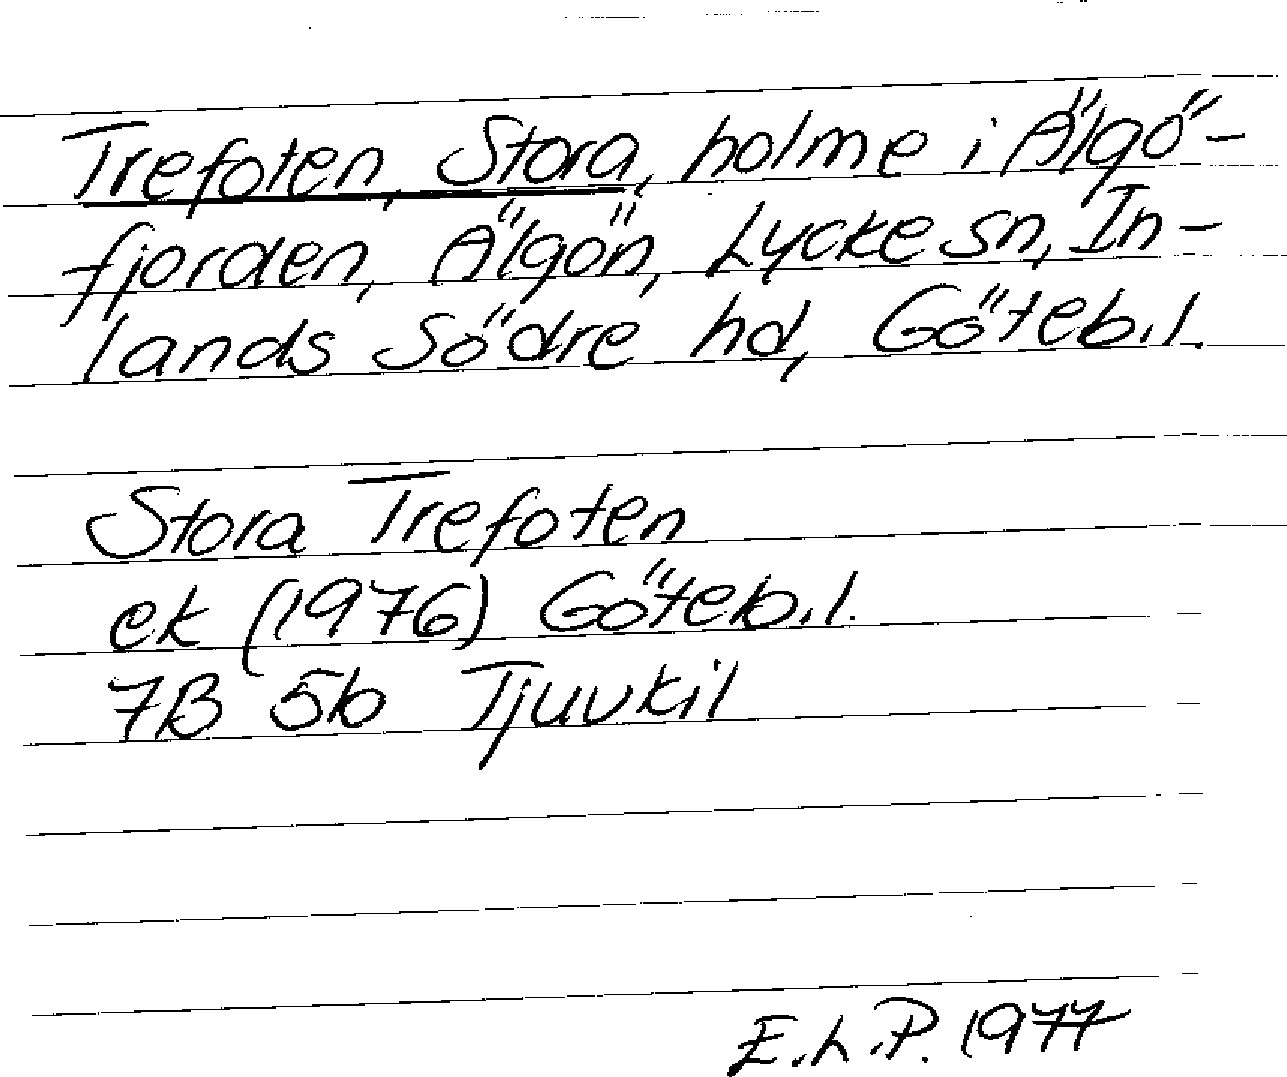 Trefoten, Stora, holme i Älgö-
fjorden, Älgön, Lycke sn, In-
lands Södre hd, Göteb.l.
Stora Trefoten
ek (1976) Göteb.l.
7B 5b Tjuvkil
E.L.P. 1977